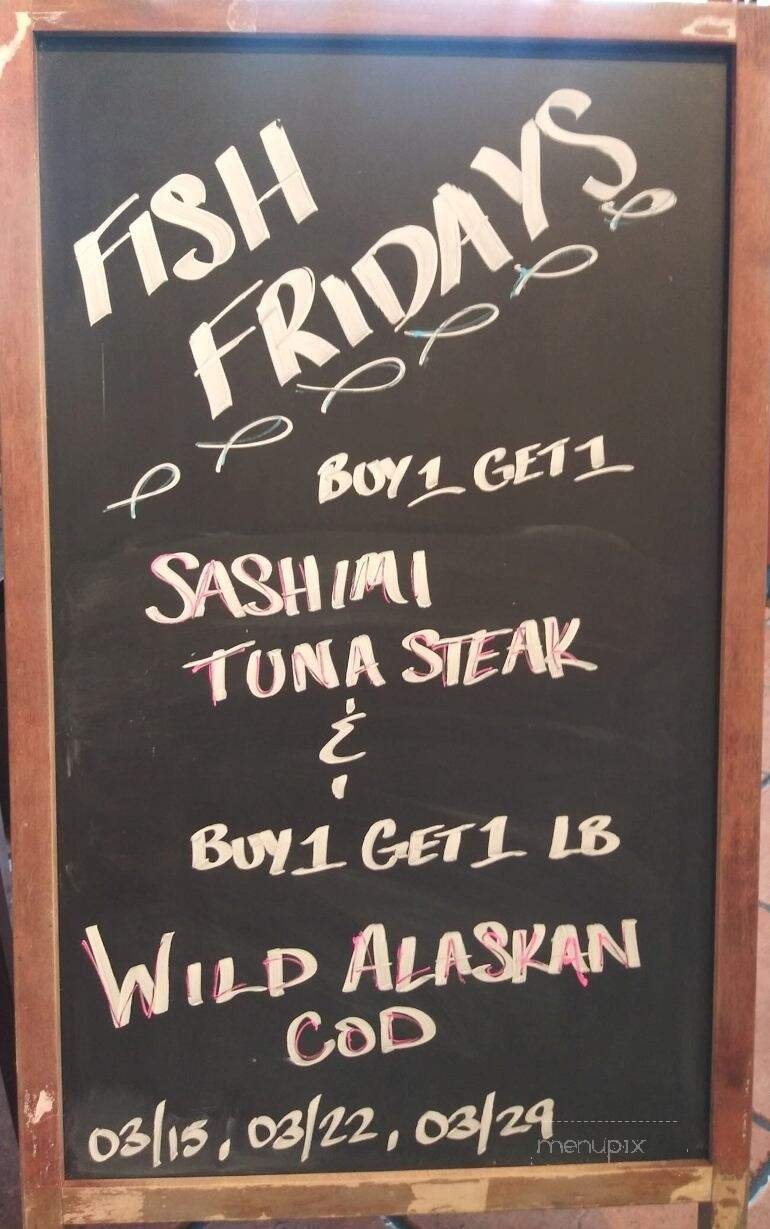 FISH
FRIDAYS
BUY 1 GET 1
SASHIMI
TUNA STEAK
&
BUY 1 GET 1 LB
WILD ALASKAN
COD
03/15, 03/22, 03/29
menupix